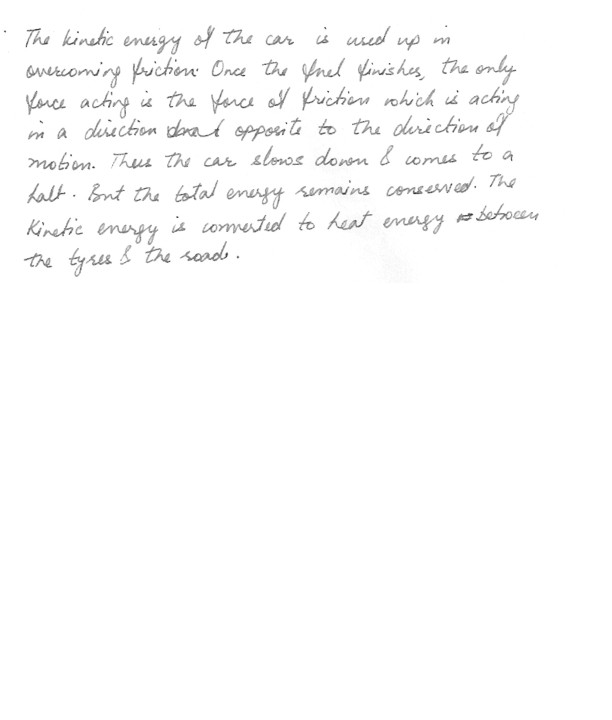 The kinetic energy of the car is used up in
overcoming friction. Once the fuel finishes, the only
force acting is the force of friction which is acting
in a direction opposite to the direction of
motion. Thus the car slows down & comes to a
halt. But the total energy remains conserved. The
Kinetic energy is converted to heat energy between
the tyres & the road.